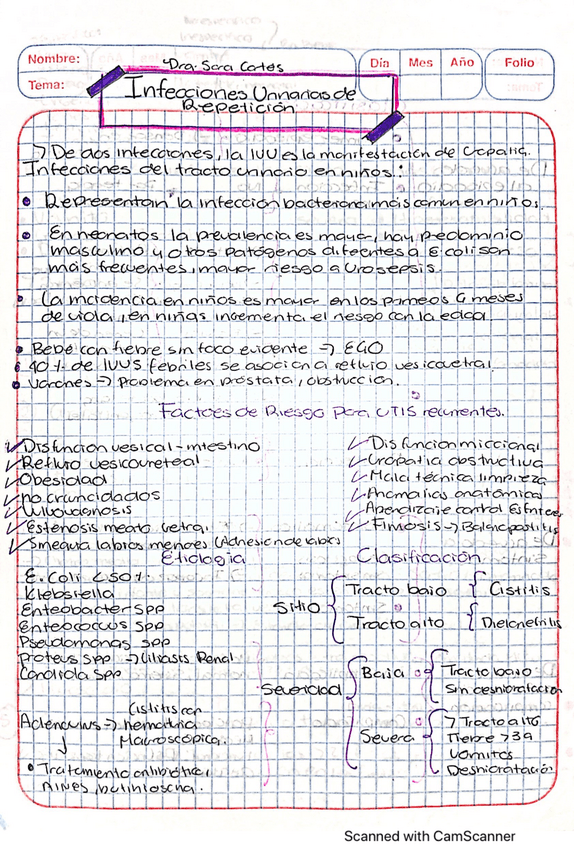 Nombre:
Dra. Sara Cortés
Día Mes Año Folio
Tema:
Infecciones Urinarias de
Repetición
> De dos infecciones, la IVU es la manifestación de Uropatía.
Infecciones del tracto urinario en niños:
• Representan la infección bacteriana más común en niños.
• En neonatos la prevalencia es mayor, hay predominio
masculino y otros patógenos diferentes a E coli son
más frecuentes, mayor riesgo a Urosepsis.
• La incidencia en niños es mayor en los primeros 6 meses
de vida, en niñas incrementa el riesgo con la edad.
• Bebé con fiebre sin foco evidente → EGO
• 40% de IVUS febriles se asocian a reflujo vesicouretral.
• Varones → Problema en próstata, obstrucción.
Factores de Riesgo para UTIS recurrentes.
✓ Disfunción vesical-intestino
✓ Reflujo vesicoureteral
✓ Obesidad
✓ no circuncidados
✓ Vulvovaginosis
✓ Estenosis meato uretral
✓ Smegua labios menores (Adhesión de labios)
✓ Disfunción miccional
✓ Uropatía obstructiva
✓ Mala técnica limpieza
✓ Anomalías anatómicas
✓ Aprendizaje control Esfínteres
✓ Fimosis → Balanopostitis
Etiología
E. Coli <50%
Klebsiella
Enterobacter spp
Enterococcus spp
Pseudomonas spp
Proteus spp → Litiasis Renal
Candida spp
Adenovirus → Cistitis con
hematuria
Macroscópica.
↓
• Tratamiento antibiótico,
Clasificación
Sitio
Tracto bajo { Cistitis
Tracto alto { Pielonefritis
Severidad
Baja
Tracto bajo
Sin deshidratación
Severa
> Tracto alto
Fiebre >39
Vómitos
Deshidratación
Scanned with CamScanner